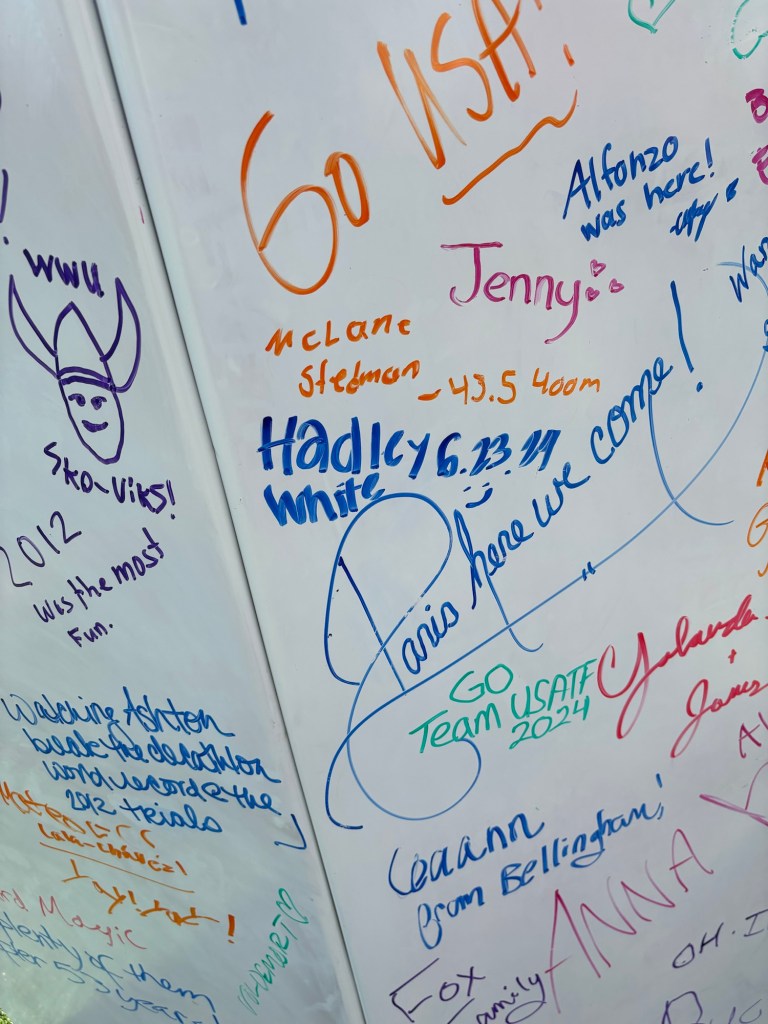 WWU
Sko-Viks!
2012
was the most
Fun.
Watching Ashton
break the decathlon
world record @ the
2012 trials
Yay!
Magic
plenty of them
Go USA!
Alfonzo
was here!
Jenny
McLane
Stedman - 43.5 400m
Hadley 6.23.24
White
Paris here we come!
GO
Team USATF
2024
Yolanda
+
James
Leaann
from Bellingham!
ANNA
Fox
Family
OH-I